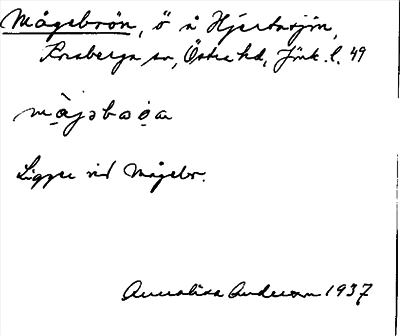 Mågebrön, ö å Hjertasjön,
Forsberga sn, Östra hd, Jönk. l. 49
Ligger vid Mågebr.
Annalisa Anderson 1937